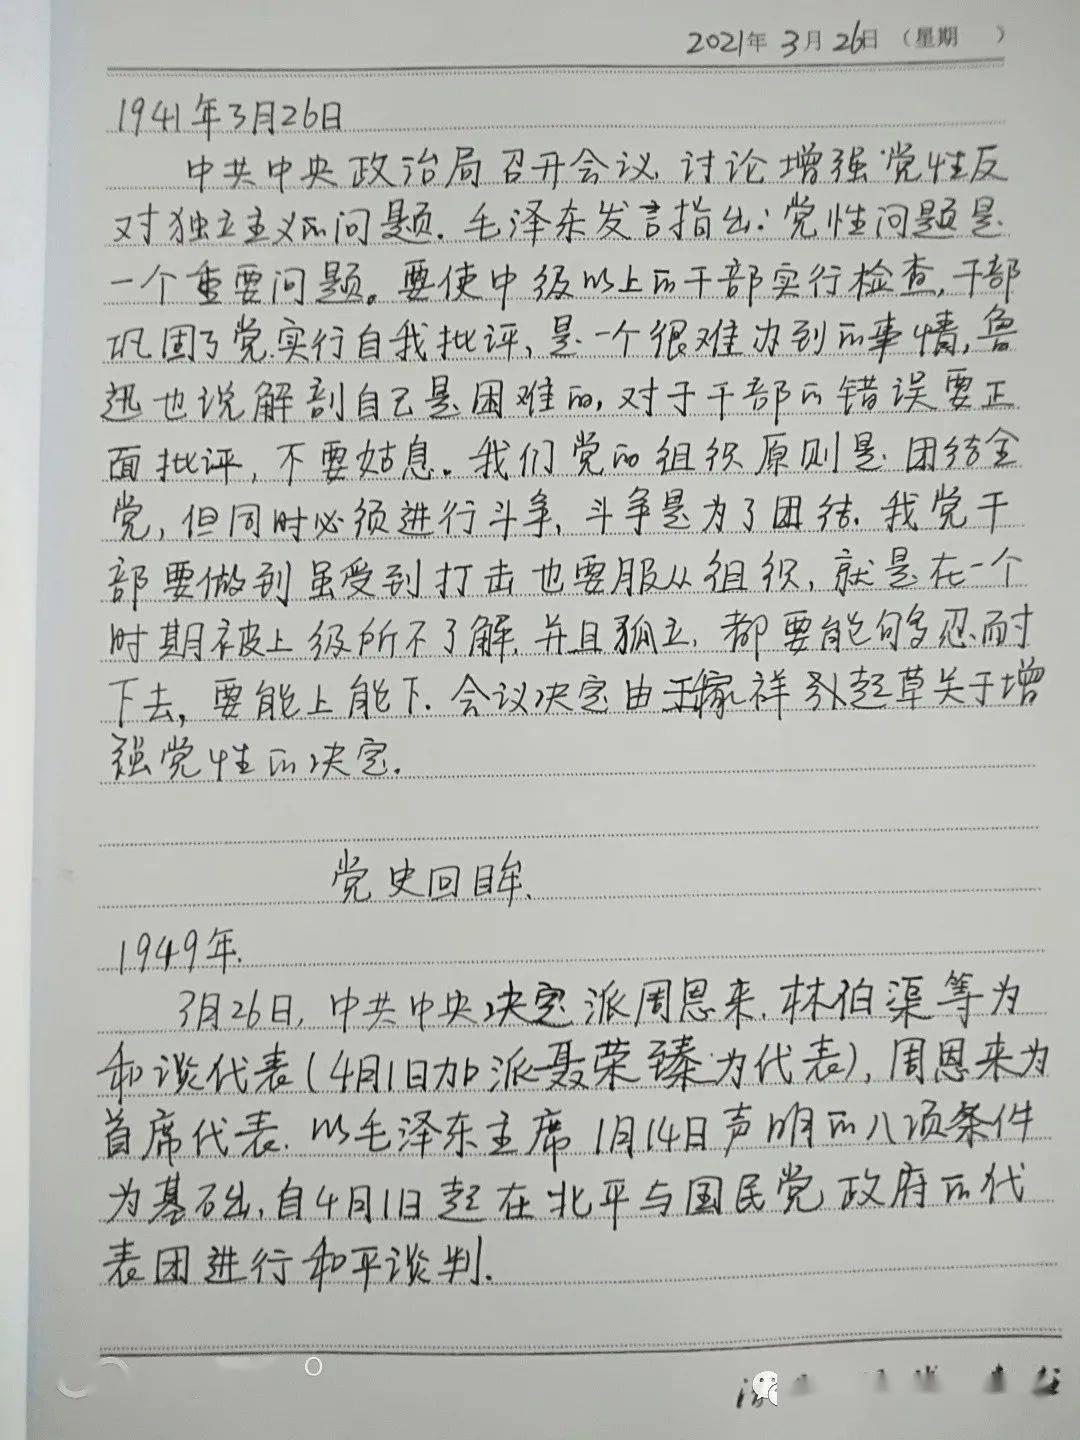 2021年 3月 26日 （星期 ）
1941年3月26日
中共中央政治局召开会议,讨论增强党性反
对独立主义的问题.毛泽东发言指出:党性问题是
一个重要问题。要使中级以上的干部实行检查,干部
巩固了党.实行自我批评,是一个很难办到的事情,鲁
迅也说解剖自己是困难的,对于干部的错误要正
面批评,不要姑息.我们党的组织原则是团结全
党,但同时必须进行斗争,斗争是为了团结.我党干
部要做到虽受到打击也要服从组织,就是在一个
时期被上级所不了解,并且孤立,都要能够忍耐
下去,要能上能下.会议决定由王稼祥引起草关于增
强党性的决定.
党史回眸.
1949年.
3月26日,中共中央决定派周恩来.林伯渠等为
和谈代表(4月1日加派聂荣臻为代表),周恩来为
首席代表.以毛泽东主席1月14日声明的八项条件
为基础,自4月1日起在北平与国民党政府的代
表团进行和平谈判.